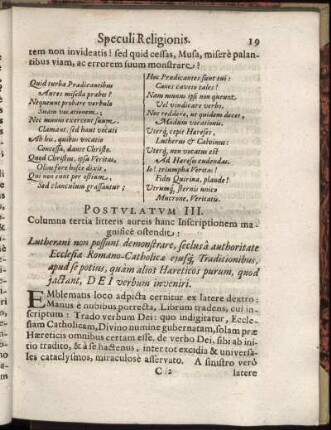 Speculi Religionis. 19
tem non invideatis! sed quid cessas, Musa, miserè palan-
tibus viam, ac errorem suum monstrare?
Quid turba Prædicantibus
Aures misella præbes?
Nequeunt probare verbulo
Suam vocationem;
Nec munus exerent suum.
Clamant, sed haut vocati
Ast hic, quibus vocatio
Concessa, dante Christo.
Quod Christus, ipsa Veritas,
Olim fore hosce dixit,
Qui non sunt per ostium,
Sed clanculum grassantur;
Hos Prædicantes sunt tui:
Canes caveto tales!
Nam munus ipsi non queunt
Vel vindicare verbo.
Nec reddere, ut quidem decet,
Modum vocationis.
Uterq; cepit Hæreses,
Lutherus & Calvinus:
Uterq; non vocatus est
Ad Hæreses cudendas.
Io! triumpha Veritas!
Fides Quirina, plaude!
Verumq; sternis unico
Mucrone, Veritatis.
POSTULATUM III.
Columna tertia litteris aureis hanc Inscriptionem ma-
gnificè ostendit:
Lutherani non possunt demonstrare, seclusâ authoritate
Ecclesiæ Romano-Catholicæ ejusq; Traditionibus,
apud se potius, quàm alios Hæreticos purum, quod
jactant, DEI verbum inveniri.
Emblematis loco adpicta cernitur ex latere dextro:
Manus è nubibus porrecta, Librum tradens, cui in-
scriptum: Trado verbum Dei: quo indigitatur, Eccle-
siam Catholicam, Divino numine gubernatam, solam præ
Hæreticis omnibus certam esse, de verbo Dei, sibi ab ini-
tio tradito, & à se hactenus, inter tot excidia & universa-
les cataclysmos, miraculosè asservato. A sinistro verò
C 2 latere